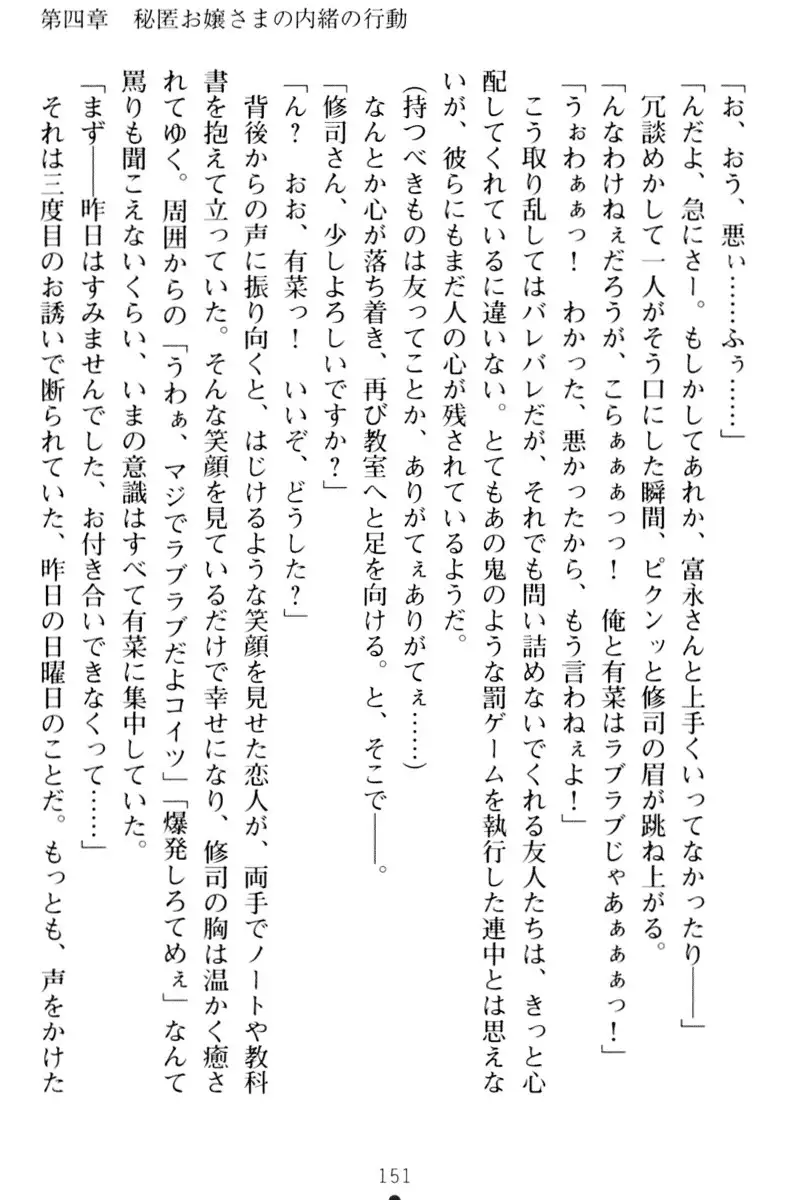 第四章　秘匿お嬢さまの内緒の行動
「お、おう、悪ぃ……ふぅ……」
「んだよ、急にさー。もしかしてあれか、富永さんと上手くいってなかったり――」
　冗談めかして一人がそう口にした瞬間、ピクンッと修司の眉が跳ね上がる。
「んなわけねぇだろうが、こらぁぁぁっっ！　俺と有菜はラブラブじゃあぁぁぁっ！」
「うぉわぁぁっ！　わかった、悪かったから、もう言わねぇよ！」
　こう取り乱してはバレバレだが、それでも問い詰めないでくれる友人たちは、きっと心
配してくれているに違いない。とてもあの鬼のような罰ゲームを執行した連中とは思えな
いが、彼らにもまだ人の心が残されているようだ。
（持つべきものは友ってことか、ありがてぇありがてぇ……）
　なんとか心が落ち着き、再び教室へと足を向ける。と、そこで――。
「修司さん、少しよろしいですか？」
「ん？　おお、有菜っ！　いいぞ、どうした？」
　背後からの声に振り向くと、はじけるような笑顔を見せた恋人が、両手でノートや教科
書を抱えて立っていた。そんな笑顔を見ているだけで幸せになり、修司の胸は温かく癒さ
れてゆく。周囲からの「うわぁ、マジでラブラブだよコイツ」「爆発しろてめぇ」なんて
罵りも聞こえないくらい、いまの意識はすべて有菜に集中していた。
「まず――昨日はすみませんでした、お付き合いできなくって……」
　それは三度目のお誘いで断られていた、昨日の日曜日のことだ。もっとも、声をかけた
151